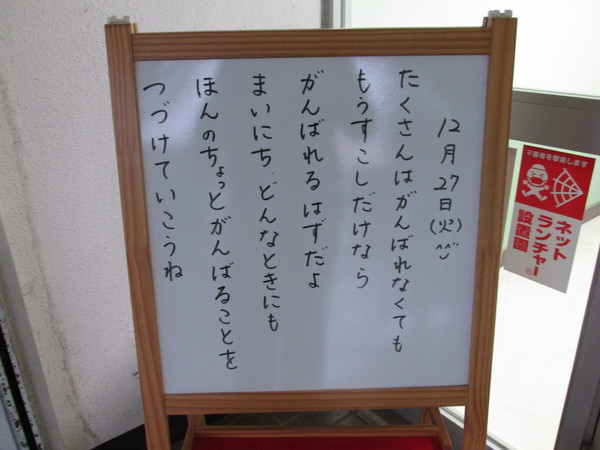 12月27日(火)^^
たくさんはがんばれなくても
もうすこしだけなら
がんばれるはずだよ
まいにち、どんなときにも
ほんのちょっとがんばることを
つづけていこうね
不審者を撃退します
ネット
ランチャー
設置園